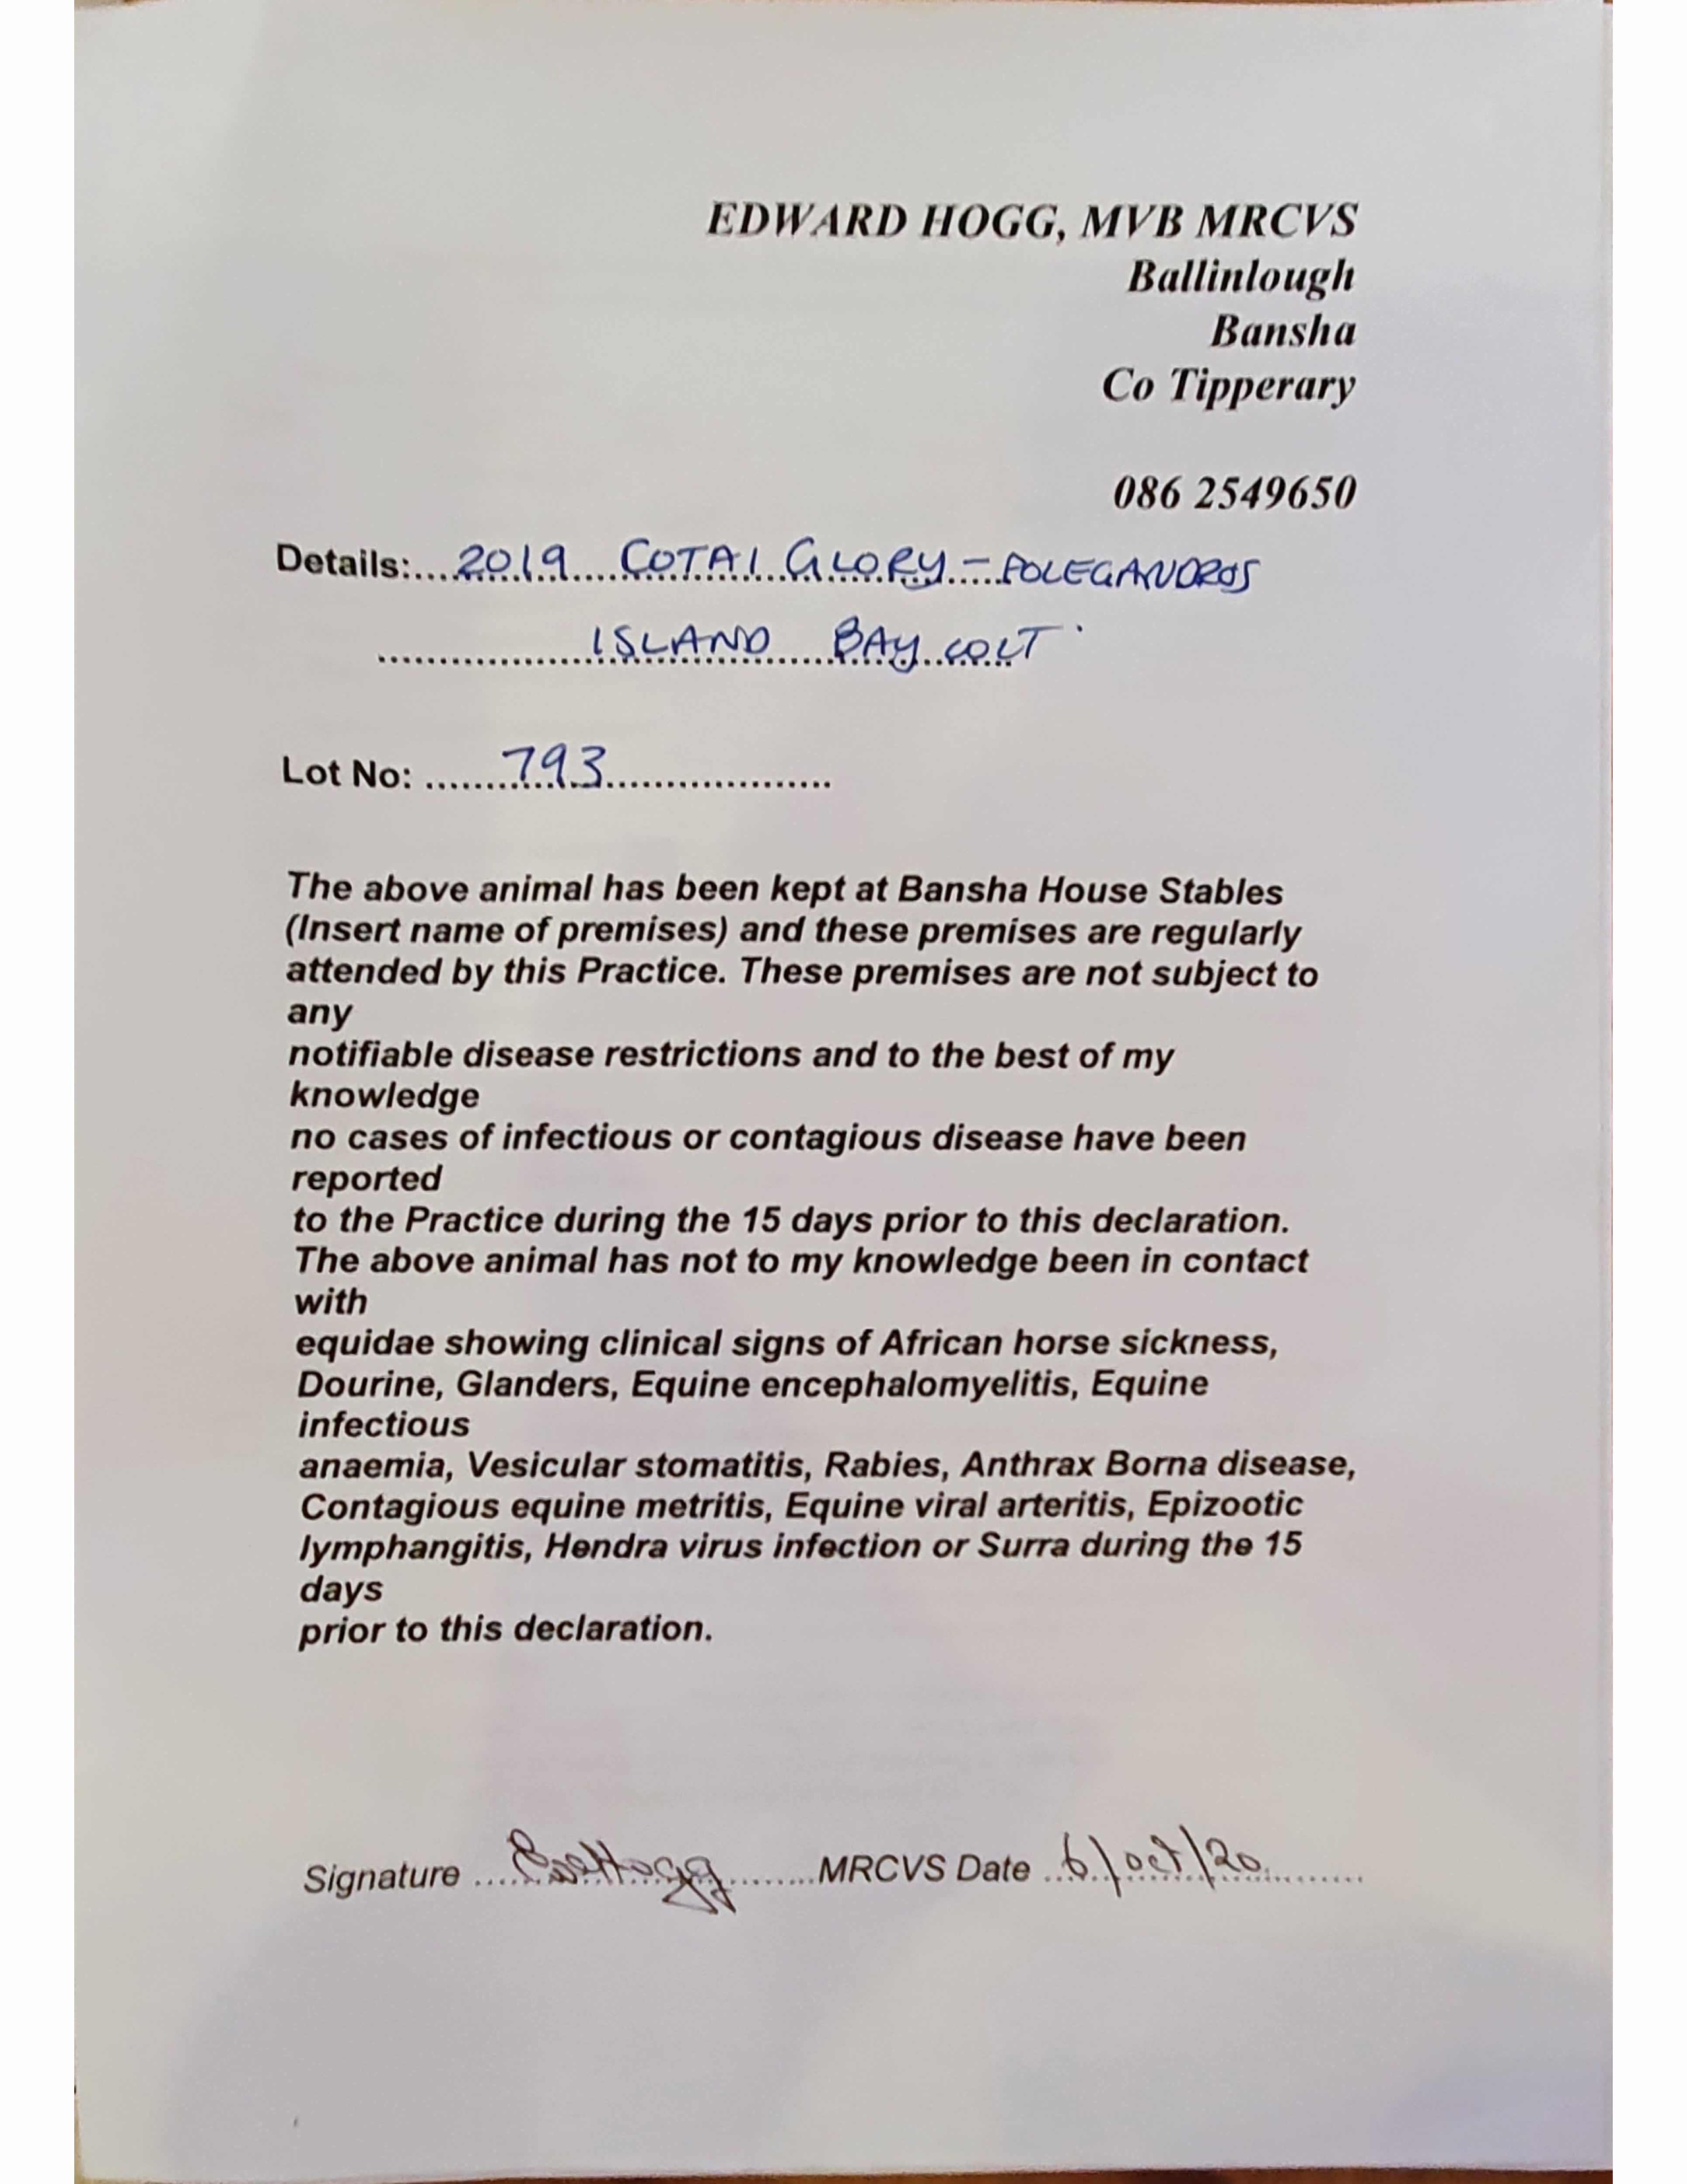 EDWARD HOGG, MVB MRCVS
Ballinlough
Bansha
Co Tipperary
086 2549650
Details:...2019 COTAI GLORY - POLEGANDROS
ISLAND BAY COLT
Lot No: ......793...................
The above animal has been kept at Bansha House Stables
(Insert name of premises) and these premises are regularly
attended by this Practice. These premises are not subject to
any
notifiable disease restrictions and to the best of my
knowledge
no cases of infectious or contagious disease have been
reported
to the Practice during the 15 days prior to this declaration.
The above animal has not to my knowledge been in contact
with
equidae showing clinical signs of African horse sickness,
Dourine, Glanders, Equine encephalomyelitis, Equine
infectious
anaemia, Vesicular stomatitis, Rabies, Anthrax Borna disease,
Contagious equine metritis, Equine viral arteritis, Epizootic
lymphangitis, Hendra virus infection or Surra during the 15
days
prior to this declaration.
Signature ...... Hogg ......MRCVS Date ..6/oct/20...........